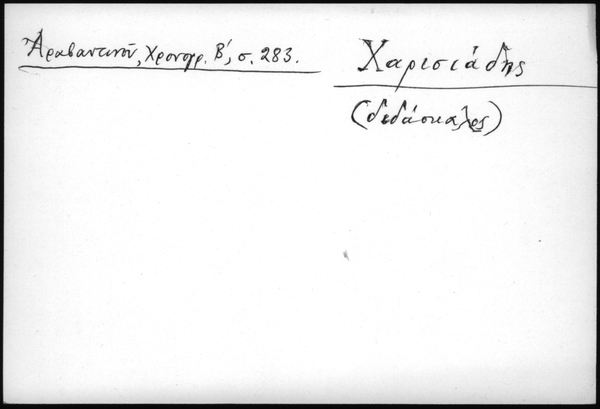 Ἀραβαντινοῦ, Χρονογρ. Β΄, σ. 283.
Χαρισιάδης
(διδάσκαλος)